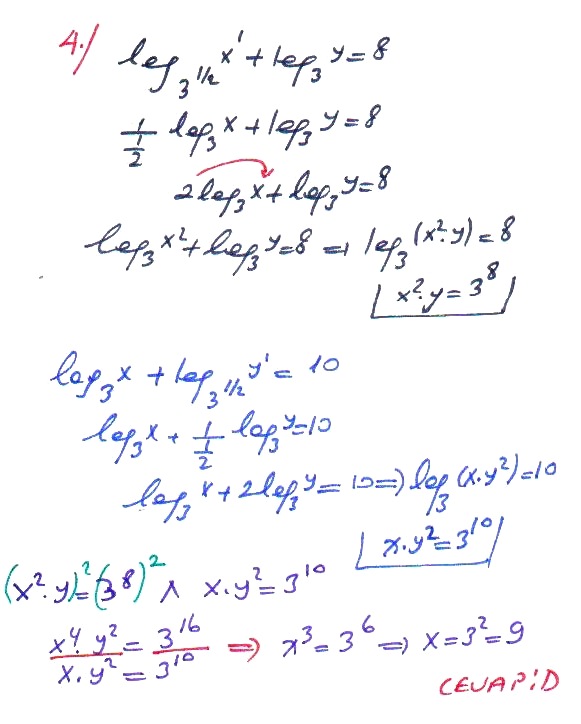 4./ log_{3^{1/2}} x^1 + log_3 y = 8
\frac{1}{\frac{1}{2}} log_3 x + log_3 y = 8
2 log_3 x + log_3 y = 8
log_3 x^2 + log_3 y = 8 ⇒ log_3 (x^2 . y) = 8
x^2 . y = 3^8
log_3 x + log_{3^{1/2}} y^1 = 10
log_3 x + \frac{1}{\frac{1}{2}} log_3 y = 10
log_3 x + 2 log_3 y = 10 ⇒ log_3 (x . y^2) = 10
x . y^2 = 3^{10}
(x^2 . y)^2 = (3^8)^2 ∧ x . y^2 = 3^{10}
\frac{x^4 . y^2 = 3^{16}}{x . y^2 = 3^{10}} ⇒ x^3 = 3^6 ⇒ x = 3^2 = 9
CEVAP: D